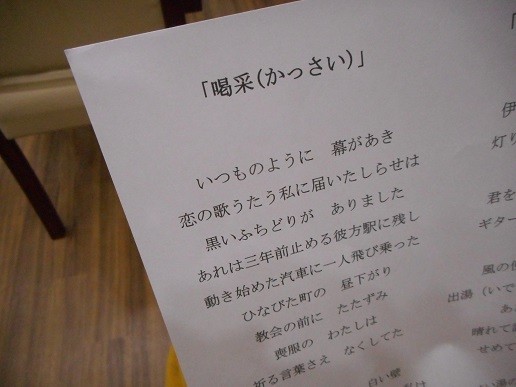 「喝采(かっさい)」
いつものように 幕があき
恋の歌うたう私に届いたしらせは
黒いふちどりが ありました
あれは三年前止める彼方駅に残し
動き始めた汽車に一人飛び乗った
ひなびた町の 昼下がり
教会の前に たたずみ
喪服の わたしは
祈る言葉さえ なくしてた
白い壁
「
伊
灯り
君を
ギター
風の
出湯(いで
あ
晴れて
せめて